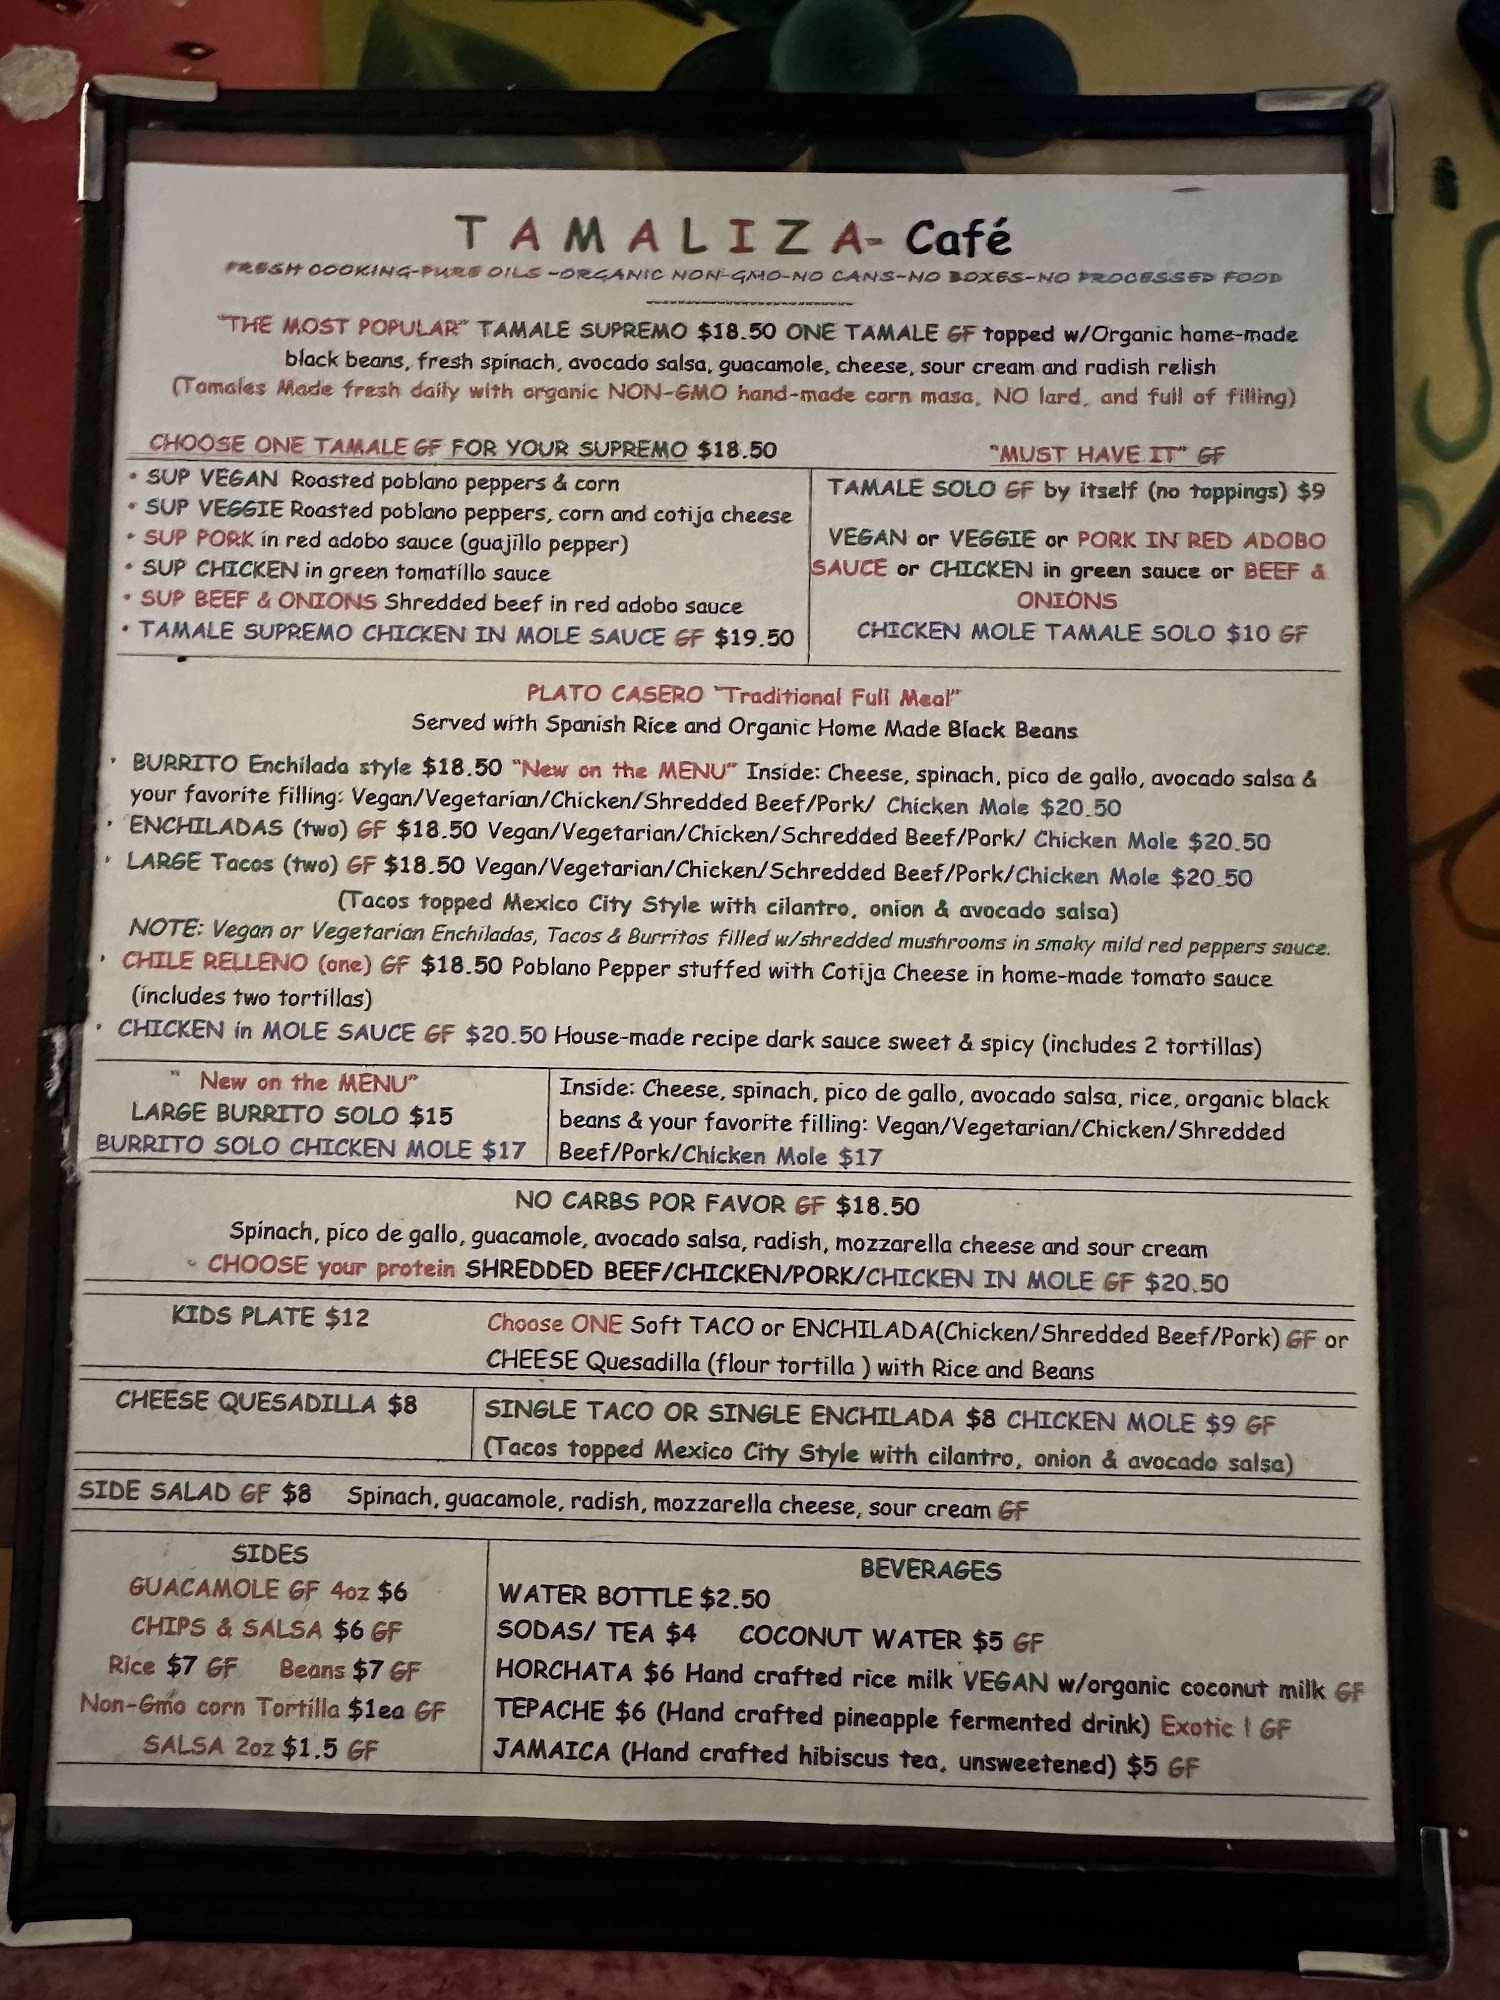 TAMALIZA- Café
FRESH COOKING-PURE OILS -ORGANIC NON-GMO-NO CANS-NO BOXES-NO PROCESSED FOOD
"THE MOST POPULAR" TAMALE SUPREMO $18.50 ONE TAMALE GF topped w/Organic home-made
black beans, fresh spinach, avocado salsa, guacamole, cheese, sour cream and radish relish
(Tamales Made fresh daily with organic NON-GMO hand-made corn masa, NO lard, and full of filling)
CHOOSE ONE TAMALE GF FOR YOUR SUPREMO $18.50
• SUP VEGAN Roasted poblano peppers & corn
• SUP VEGGIE Roasted poblano peppers, corn and cotija cheese
• SUP PORK in red adobo sauce (guajillo pepper)
• SUP CHICKEN in green tomatillo sauce
• SUP BEEF & ONIONS Shredded beef in red adobo sauce
• TAMALE SUPREMO CHICKEN IN MOLE SAUCE GF $19.50
"MUST HAVE IT" GF
TAMALE SOLO GF by itself (no toppings) $9
VEGAN or VEGGIE or PORK IN RED ADOBO
SAUCE or CHICKEN in green sauce or BEEF &
ONIONS
CHICKEN MOLE TAMALE SOLO $10 GF
PLATO CASERO "Traditional Full Meal"
Served with Spanish Rice and Organic Home Made Black Beans
• BURRITO Enchilada style $18.50 "New on the MENU" Inside: Cheese, spinach, pico de gallo, avocado salsa &
your favorite filling: Vegan/Vegetarian/Chicken/Shredded Beef/Pork/ Chicken Mole $20.50
• ENCHILADAS (two) GF $18.50 Vegan/Vegetarian/Chicken/Schredded Beef/Pork/ Chicken Mole $20.50
• LARGE Tacos (two) GF $18.50 Vegan/Vegetarian/Chicken/Schredded Beef/Pork/Chicken Mole $20.50
(Tacos topped Mexico City Style with cilantro, onion & avocado salsa)
NOTE: Vegan or Vegetarian Enchiladas, Tacos & Burritos filled w/shredded mushrooms in smoky mild red peppers sauce.
• CHILE RELLENO (one) GF $18.50 Poblano Pepper stuffed with Cotija Cheese in home-made tomato sauce
(includes two tortillas)
• CHICKEN in MOLE SAUCE GF $20.50 House-made recipe dark sauce sweet & spicy (includes 2 tortillas)
" New on the MENU"
LARGE BURRITO SOLO $15
BURRITO SOLO CHICKEN MOLE $17
Inside: Cheese, spinach, pico de gallo, avocado salsa, rice, organic black
beans & your favorite filling: Vegan/Vegetarian/Chicken/Shredded
Beef/Pork/Chicken Mole $17
NO CARBS POR FAVOR GF $18.50
Spinach, pico de gallo, guacamole, avocado salsa, radish, mozzarella cheese and sour cream
• CHOOSE your protein SHREDDED BEEF/CHICKEN/PORK/CHICKEN IN MOLE GF $20.50
KIDS PLATE $12
Choose ONE Soft TACO or ENCHILADA(Chicken/Shredded Beef/Pork) GF or
CHEESE Quesadilla (flour tortilla ) with Rice and Beans
CHEESE QUESADILLA $8
SINGLE TACO OR SINGLE ENCHILADA $8 CHICKEN MOLE $9 GF
(Tacos topped Mexico City Style with cilantro, onion & avocado salsa)
SIDE SALAD GF $8 Spinach, guacamole, radish, mozzarella cheese, sour cream GF
SIDES
GUACAMOLE GF 4oz $6
CHIPS & SALSA $6 GF
Rice $7 GF Beans $7 GF
Non-Gmo corn Tortilla $1ea GF
SALSA 2oz $1.5 GF
BEVERAGES
WATER BOTTLE $2.50
SODAS/ TEA $4 COCONUT WATER $5 GF
HORCHATA $6 Hand crafted rice milk VEGAN w/organic coconut milk GF
TEPACHE $6 (Hand crafted pineapple fermented drink) Exotic ! GF
JAMAICA (Hand crafted hibiscus tea, unsweetened) $5 GF